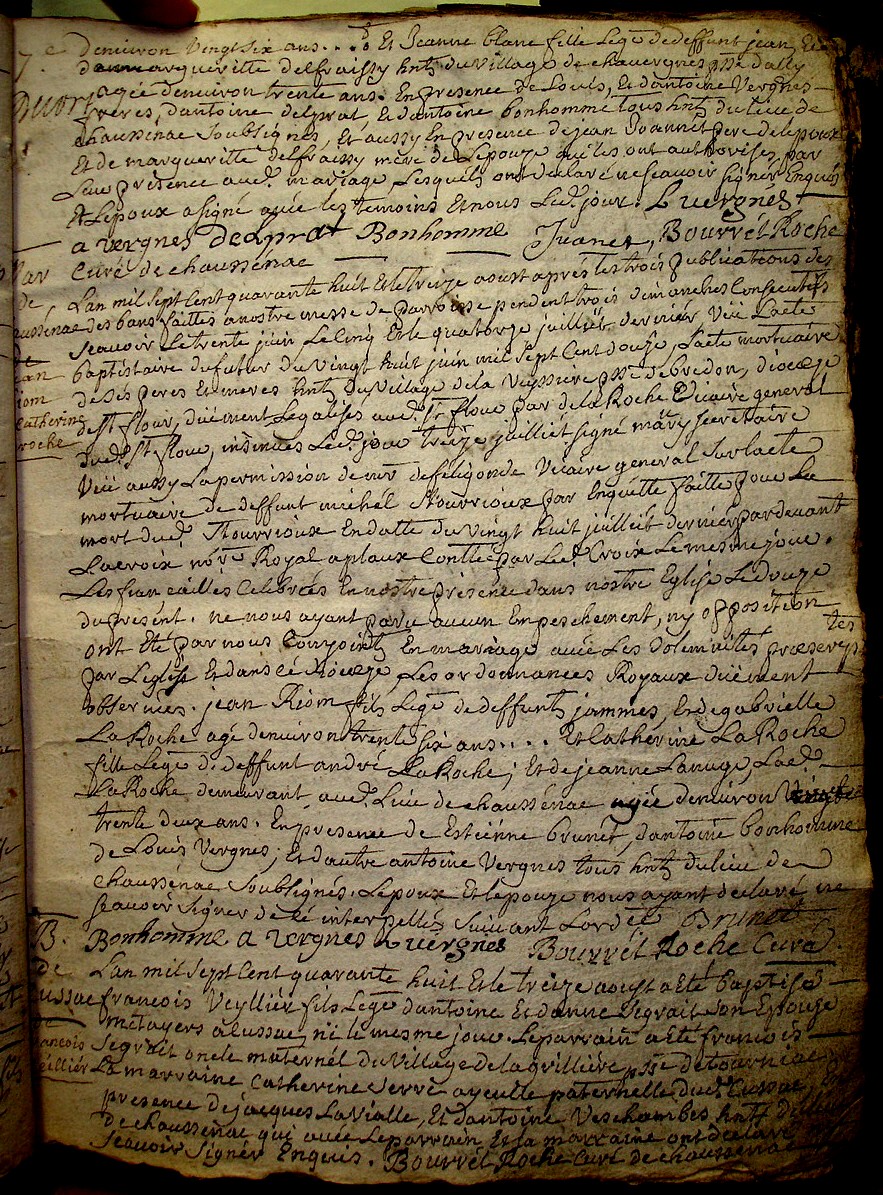 7.e
denuiron vingt six ans . . . . Et Jeanne blanc fille Lege. de deffunt jean, Et
de margueritte delfraissy hnts du village de chauvergnes psse d'ally
agée denuiron trente ans. En presence de Louis, Et dantoine Vergnes
freres, dantoine delprat, Et dantoine bonhomme tous hnts du lieu de
chaussenac Soubsignés, Et aussy En presence de jean Joannet pere de lepoux
Et de marguerite delfraissy mere de Lepouze qui les ont authorisez par
Leur presence aud. mariage, Lesquels ont déclaré ne scauoir signer Enquis
Et Lepoux a signé auec les temoins Et nous Led. jour. L vergnes
a vergnes delprat Bonhomme Juanet, Bourret Roche
Curé de chaussenac
Mar
de
aussenac
de
ean
iom
Catherine
roche
Lan mil sept Cent quarante huit Et le treize aoust aprés les trois publications des
des bans faittes a nostre messe de parroisse pendent trois dimanches Consecutifs
Scauoir Le trente juin Le Cinq Et le quatorze juillier dernier Veü Lacte
baptistaire du futur du Vingt huit juin mil sept Cent douze, Lacte mortuaire
de ses peres Et meres hnts du Village de la Veyssiere psse de bredon, dioceze
de St flour, düement Legalisés aud. St flour par de la Roche Vicaire general
dud. St flour, insinués Led. jour treize juilliet signé mary secretaire
Veü aussy La permission de mr de feligonde Vicaire general Sur lacte
mortuaire de deffunt michel Stourrioux par Enquette faitte pour La
mort dud. Stourrioux En datte du Vingt huit juilliet dernier par deuant
Lacroix nore Royal a plaux Contllé par Led. Croix Le mesme jour.
Les fiancailles Celebrées En nostre presence dans nostre Eglise Le douze
du present. ne nous ayant paru aucun Empeschement, ny opposition
ont Eté par nous Conjoints En mariage auec Les solemnités prescrites
par L'eglise Et dans cé dioceze, Les ordonnances Royaux düement
obseruées. jean Riom fils Lege de deffunts jammes, Et de gabrielle
La Roche agé denuiron trente six ans . . . . Et Catherine La Roche
fille Lege de deffunt andré La Roche; Et de jeanne Lanuge, Lad.
La Roche demeurant aud. Lieu de chaussénac agée denuiron
trente deux ans. En presence de Estienne brunet, dantoine bonhomme
de Louis Vergnes, Et dautre antoine Vergnes tous hnts du lieu de
Chaussénac Soublignés. Lepoux Et lepouze nous ayant declaré ne
scauoir signer de cé interpellés Suiuant Lordce Brunet
Bonhomme a vergnes L vergnes Bourret Roche Curé
B.
de
ussac
de
rancois
eillier
Lan mil sept Cent quarante huit Et le treize aoust a Eté baptisé
francois Veyllier fils Lege dantoine Et danne Segrait son Epouze
métayers a Cussac, né le mesme jour. Le parrain a Eté francois
Segrait oncle maternel du Village de la grilliere psse de tourniac
La marraine Catherine Serre ayeulle paternelle dud. Cussac, En
presence de jacques La Vialle, Et dantoine Veschambes hnts du lieu
de chaussenac qui auec Le parrain Et la marraine ont declaré ne
Scauoir Signer Enquis. Bourret Roche Curé de chaussenac